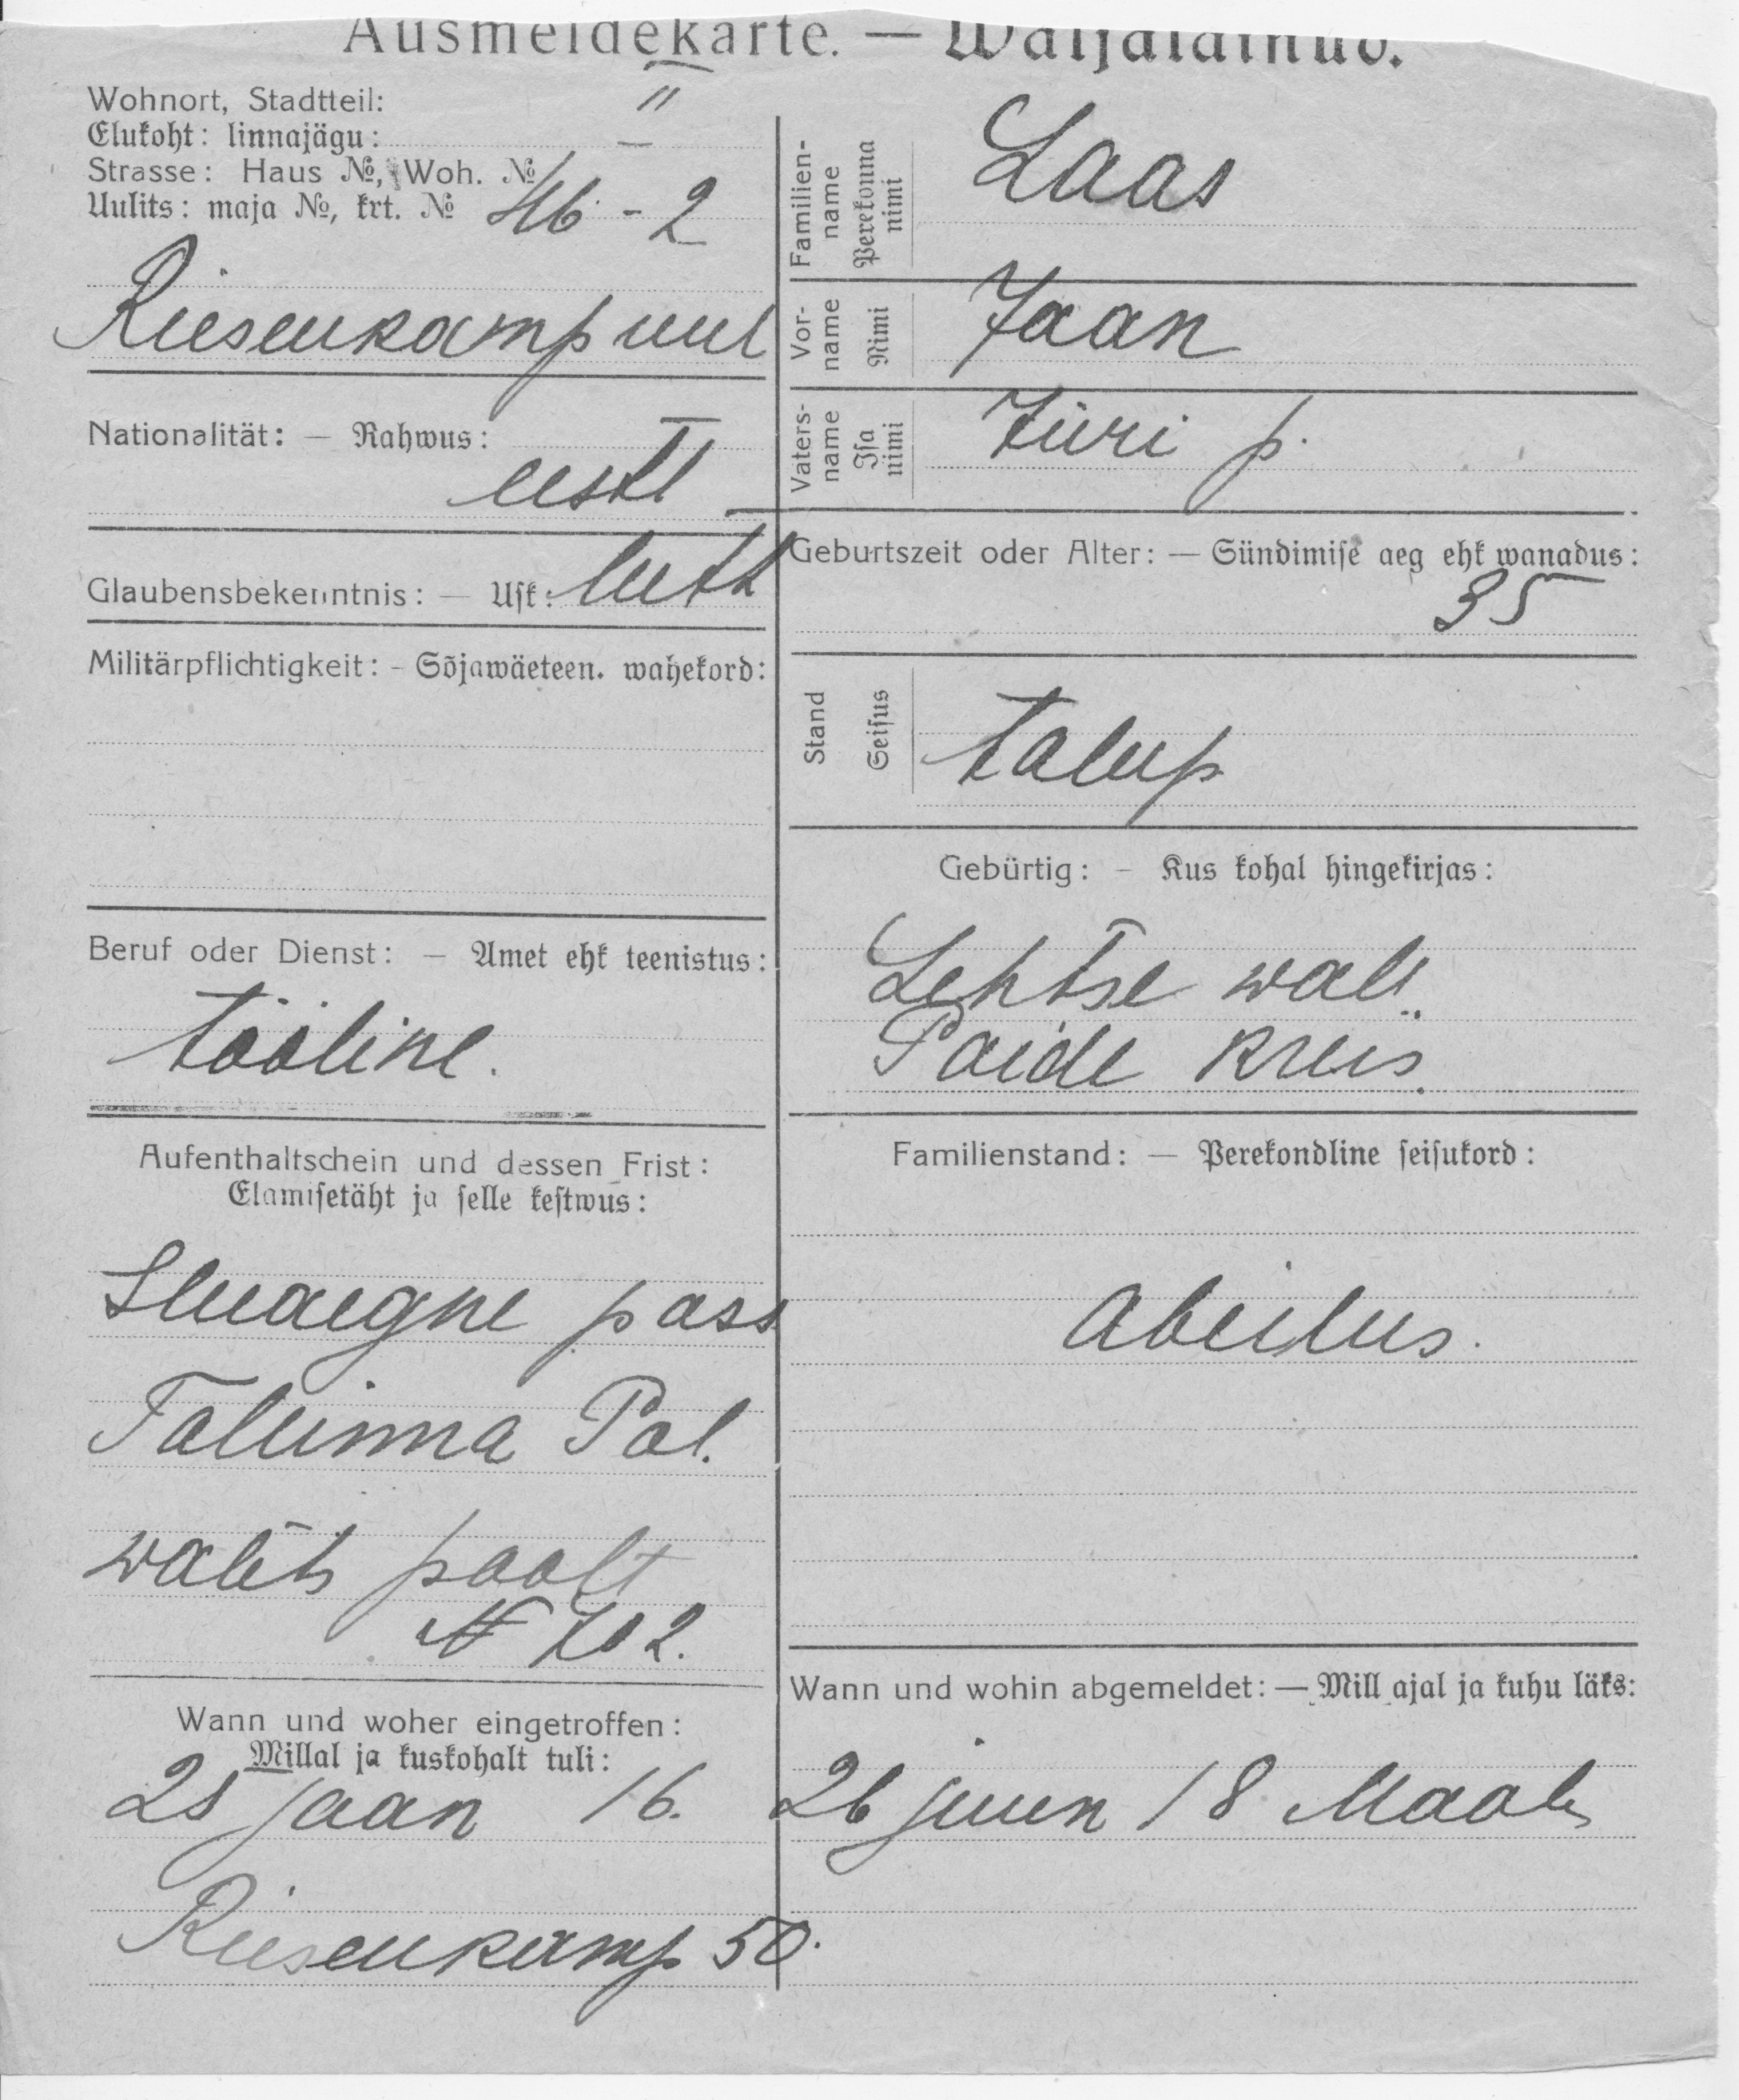 Ausmeldekarte. — Waljaläinud.
Wohnort, Stadtteil: II
Elukoht: linnajägu:
Strasse: Haus №, Woh. №
Uulits: maja №, krt. № 46 - 2
Riesenkamp uul
Nationalität: — Rahwus:
eesti
Glaubensbekenntnis: — Usk: luth
Militärpflichtigkeit: - Sõjawäeteen. wahekord:
Beruf oder Dienst: — Amet ehk teenistus:
tööline.
Aufenthaltschein und dessen Frist:
Elamisetäht ja selle kestwus:
Iluaegne pass
Tallinna Pol.
walits poolt
N 702.
Wann und woher eingetroffen:
Millal ja kuskohalt tuli:
28 jaan 16.
Riesenkamp 50.
Familien-name Perekonna nimi Laas
Vor-name Nimi Jaan
Vaters-name Isa nimi Jüri p.
Geburtszeit oder Alter: — Sündimise aeg ehk wanadus:
35
Stand Seisus talup
Gebürtig: — Kus kohal hingekirjas:
Lehtse wall
Paide kreis
Familienstand: — Perekondline seisukord:
abielus.
Wann und wohin abgemeldet: — Mill ajal ja kuhu läks:
26 juun 18 Maale